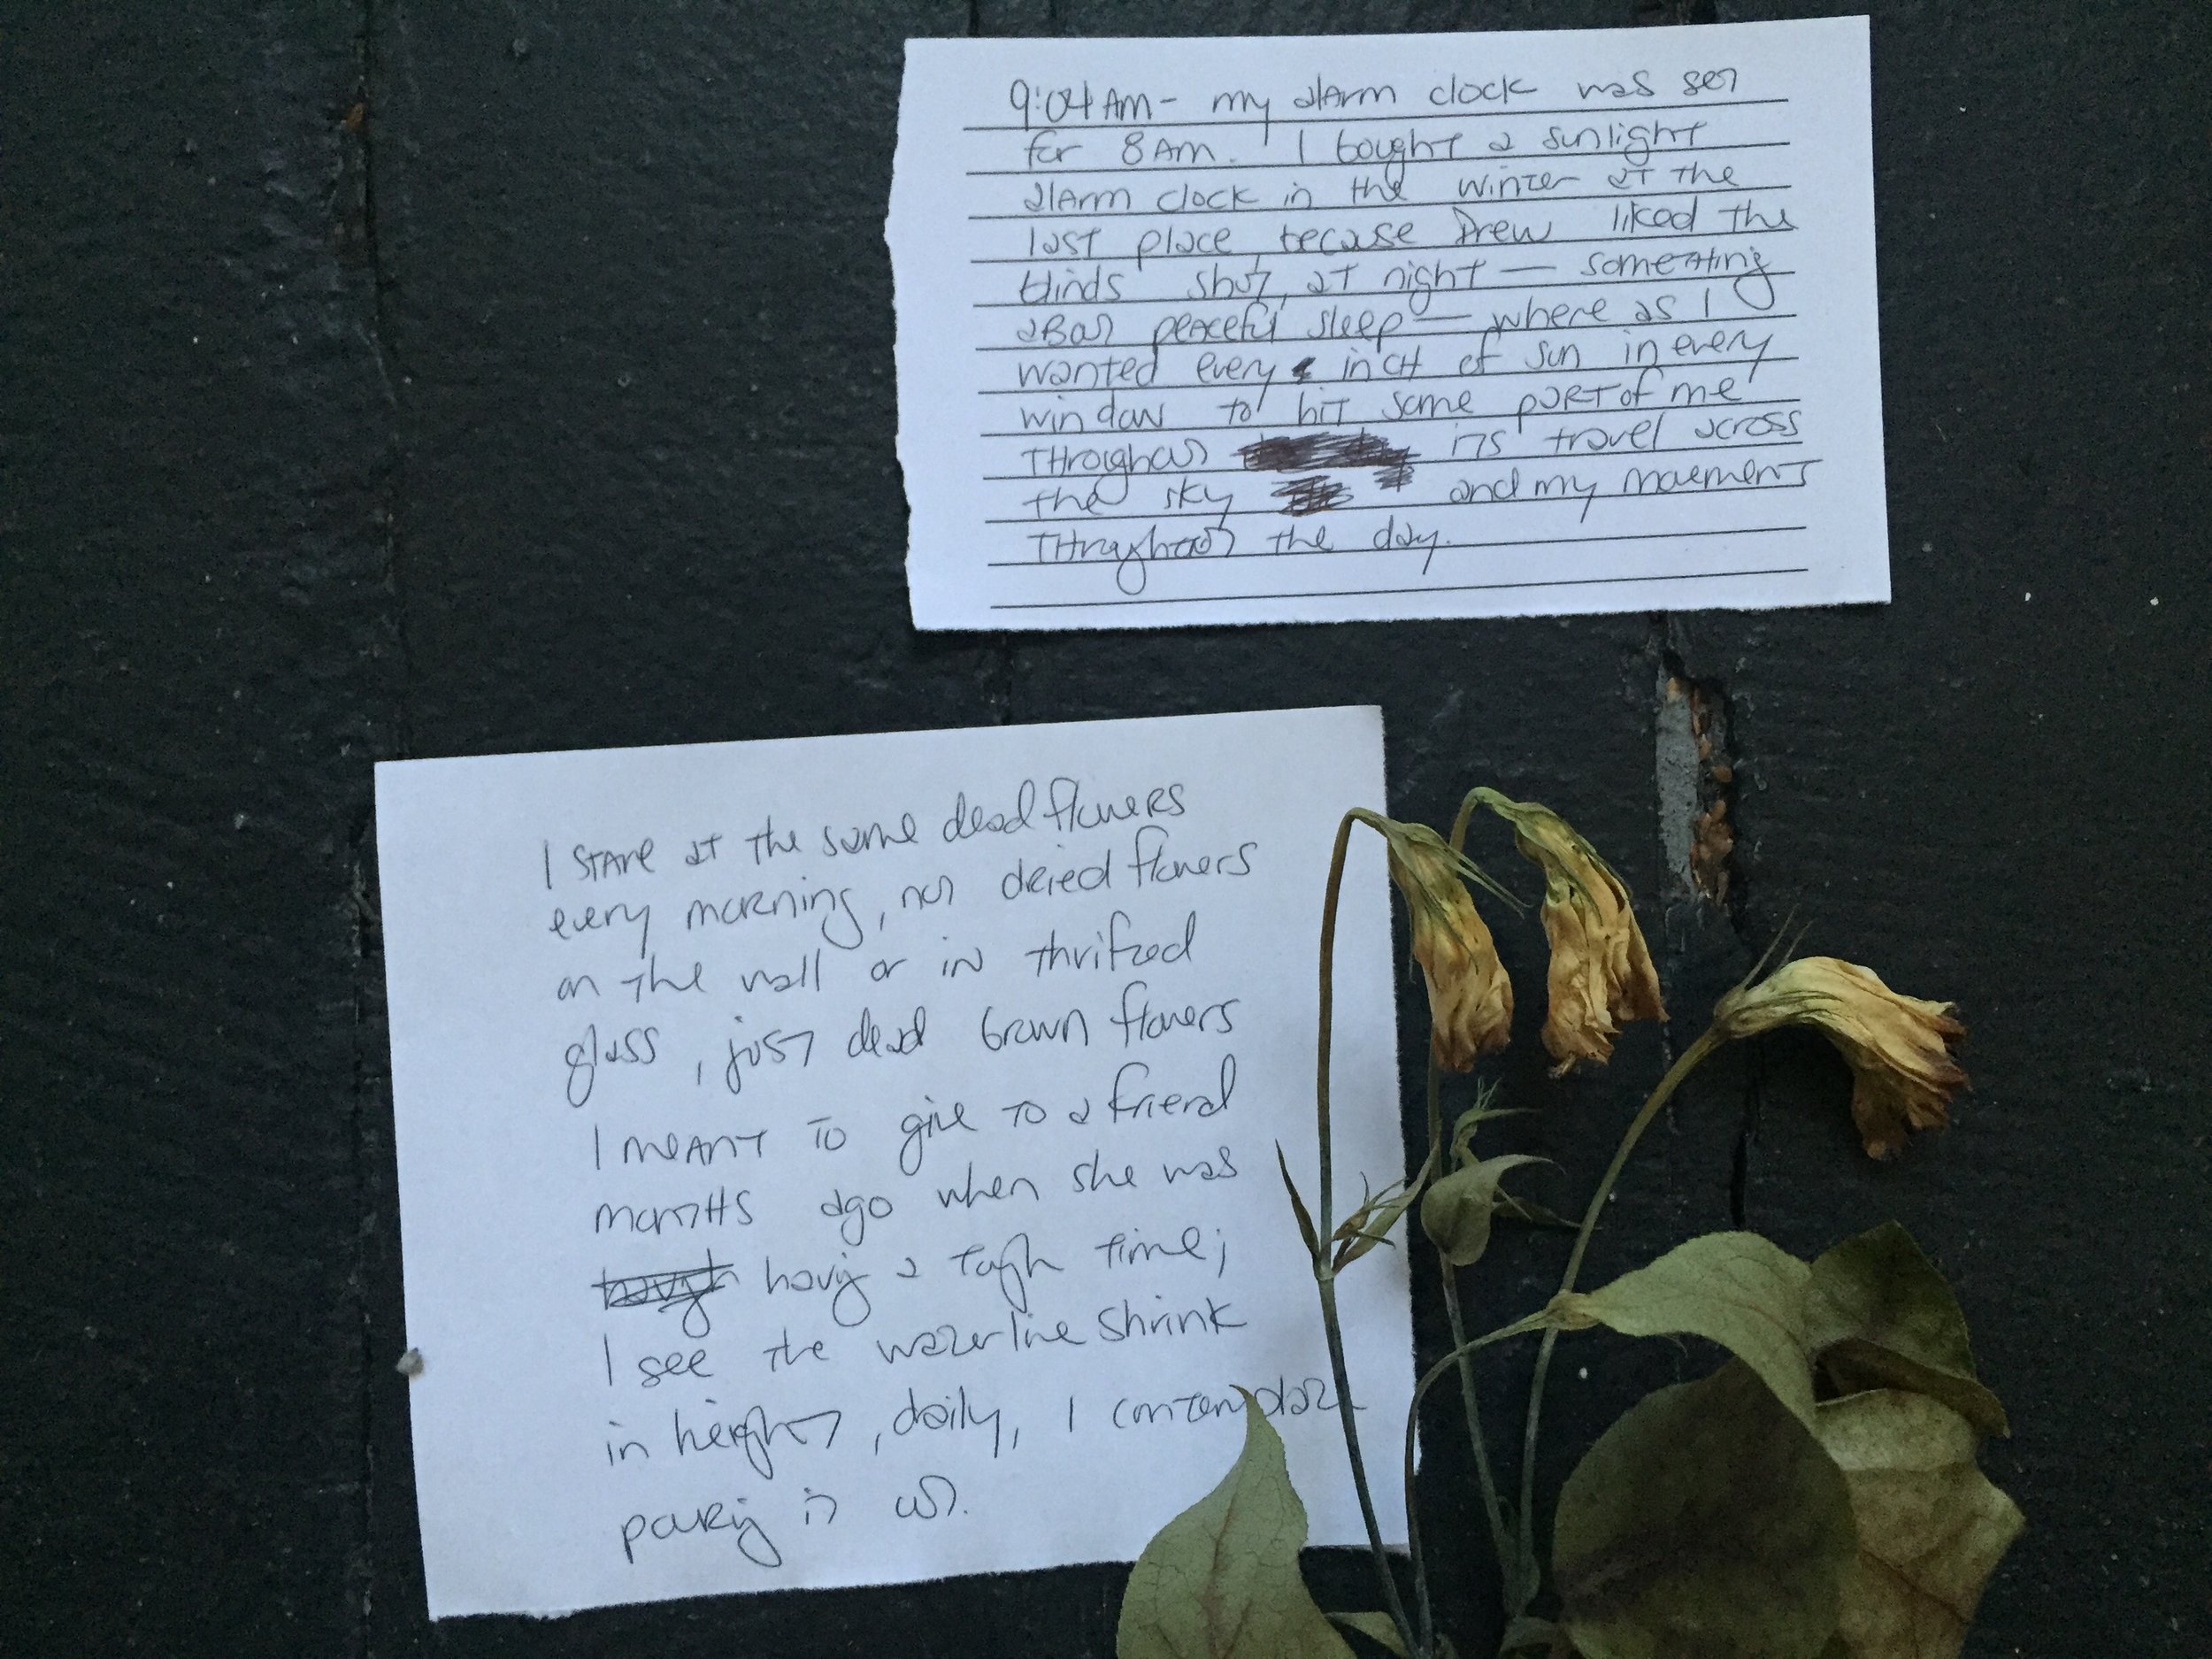 9:04 AM - my alarm clock was set
for 8 AM. I bought a sunlight
alarm clock in the winter at the
last place, because Drew liked the
blinds shut, at night — something
about peaceful sleep — where as I
wanted every inch of sun in every
window to hit some part of me
throughout its travel across
the sky and my movement
throughout the day.
I stare at the same dead flowers
every morning, not dried flowers
on the wall or in thrifted
glass, just dead brown flowers
I meant to give to a friend
months ago when she was
having a tough time;
I see the waterline shrink
in height, daily, I contemplate
pouring it out.